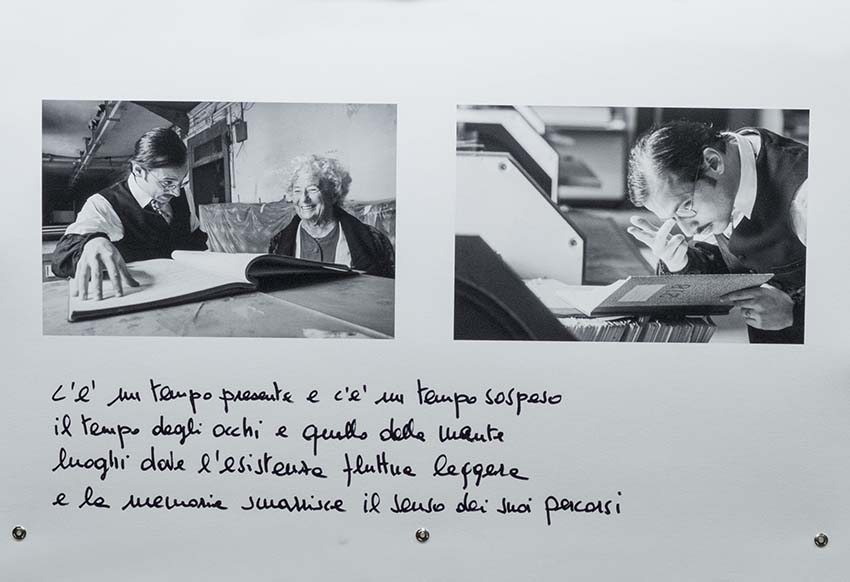 c'e' un tempo presente e c'e' un tempo sospeso
il tempo degli occhi e quello della mente
luoghi dove l'esistenza fluttua leggera
e la memoria smarrisce il senso dei suoi percorsi